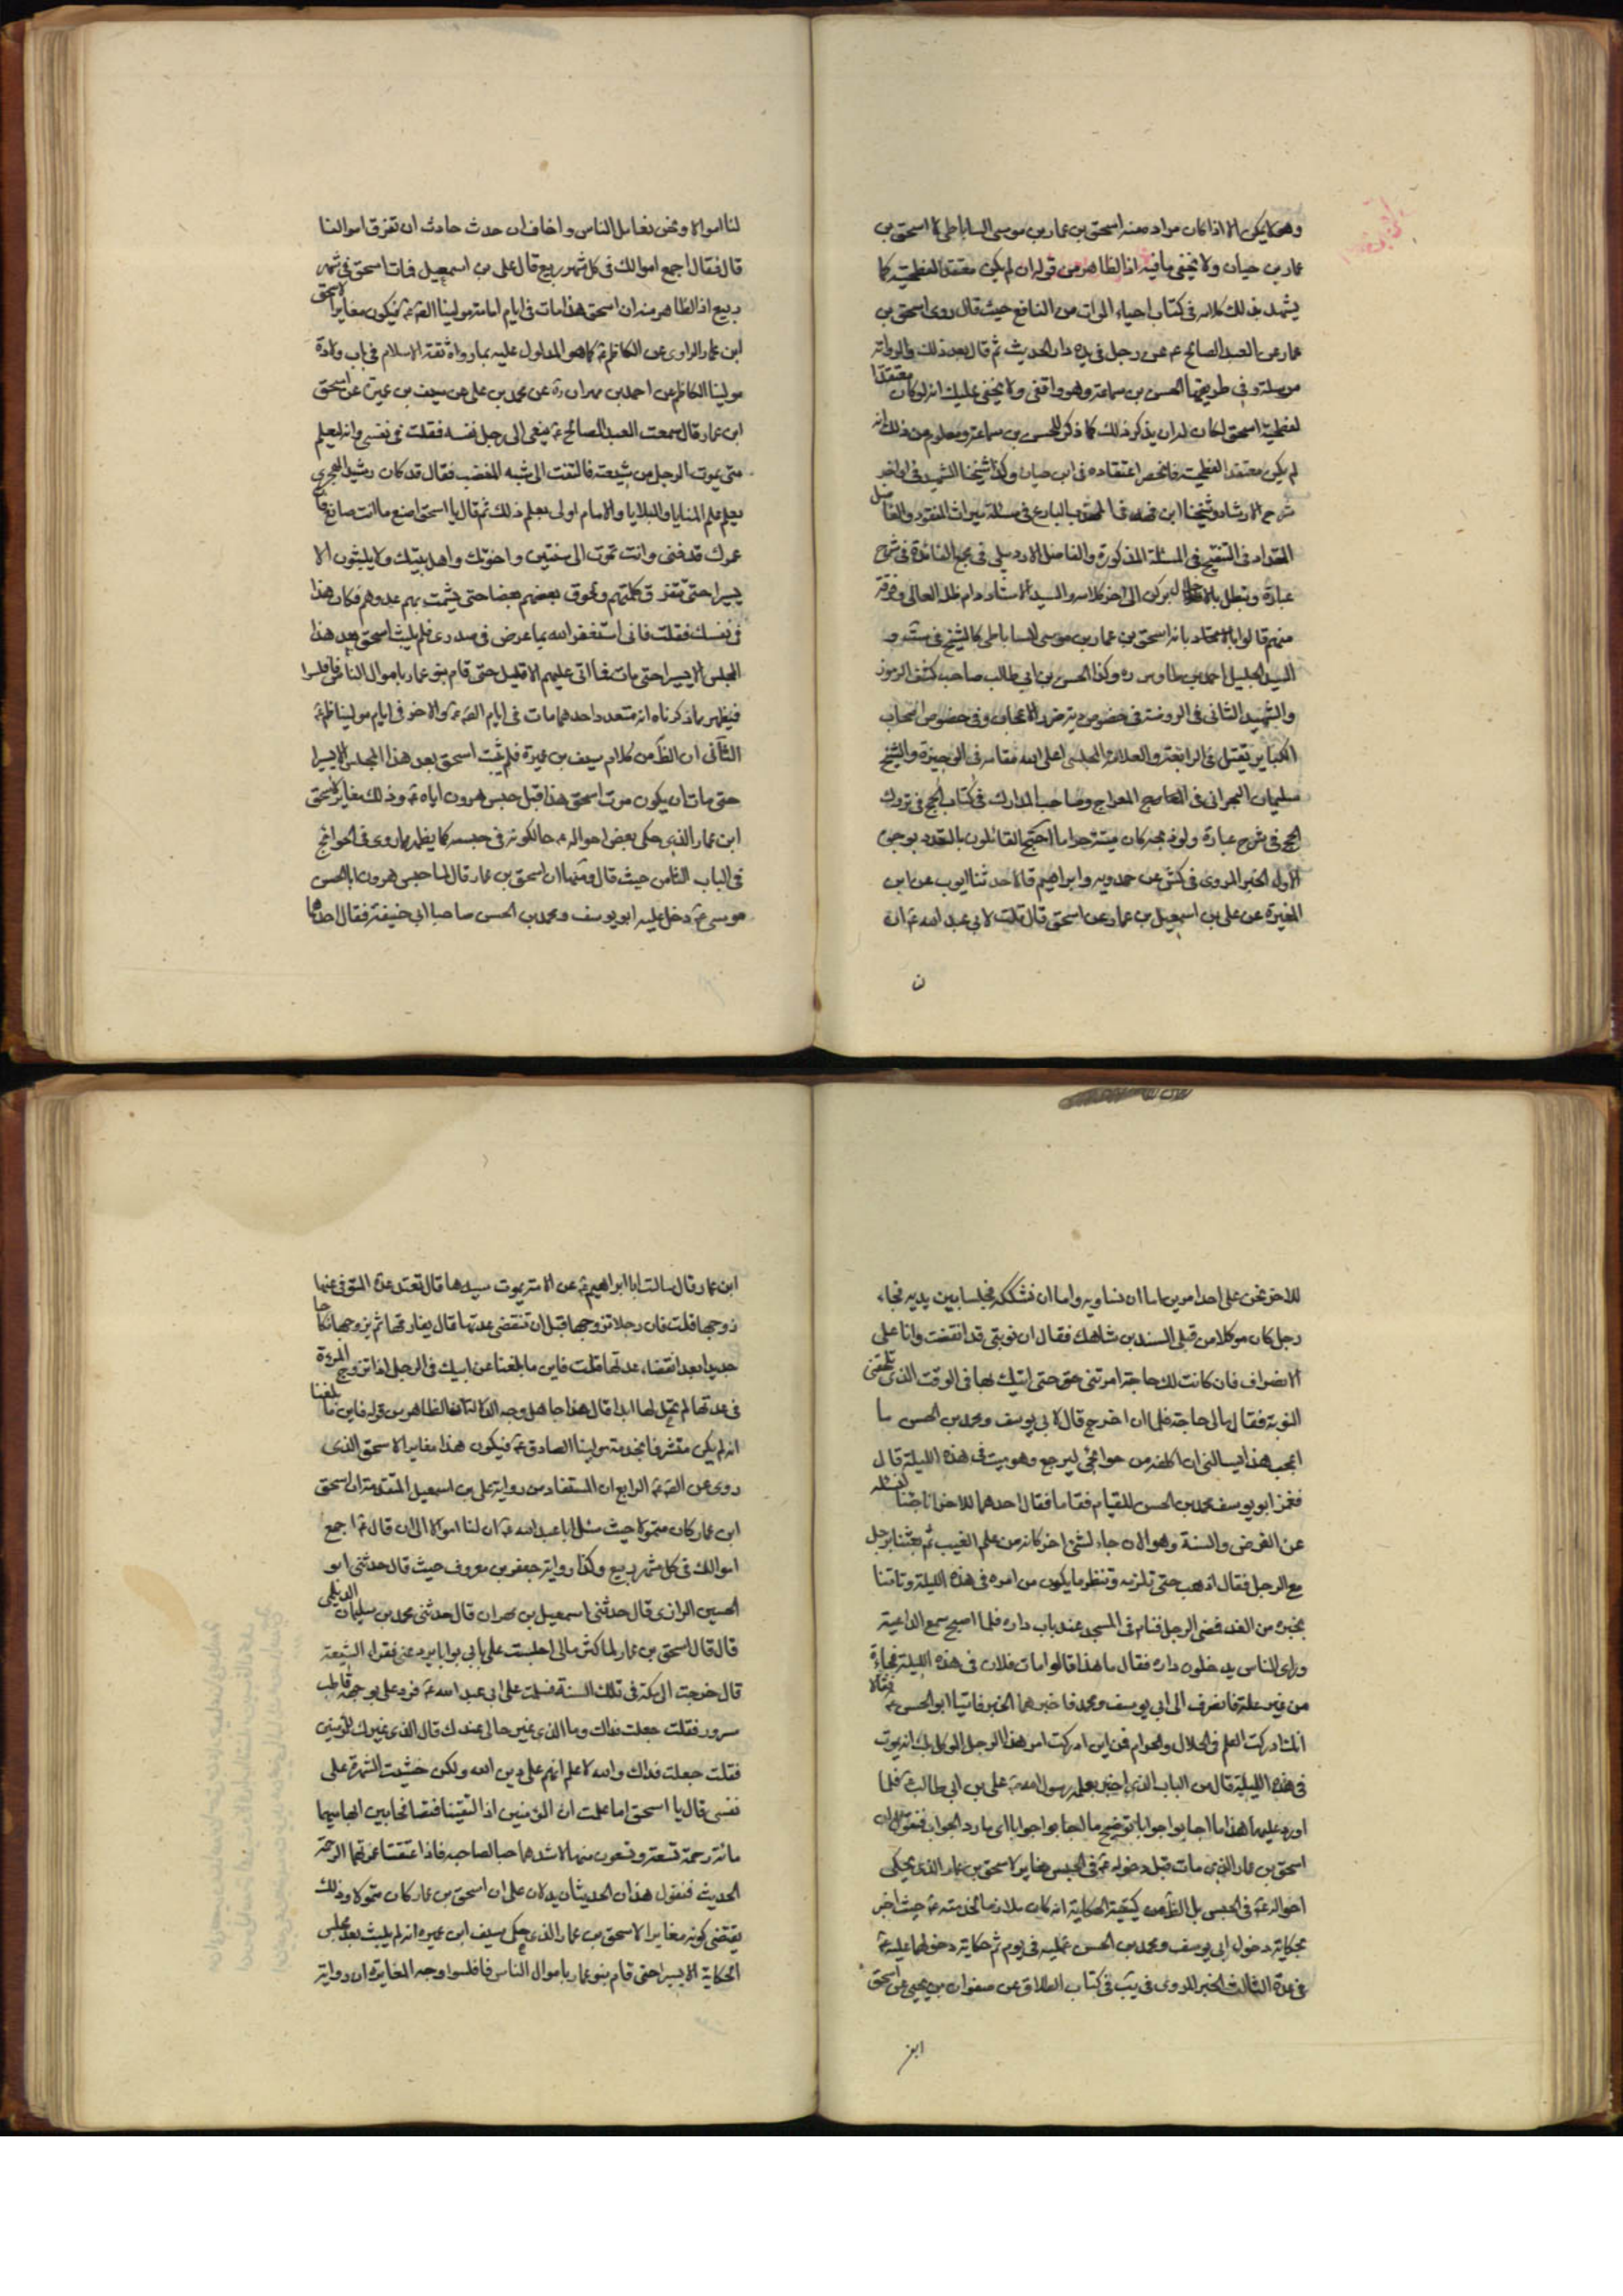 وهو لا يمكن الا اذا كان مراده منه اسحق بن عمار بن موسى الساباطي لا اسحق بن
عمار بن حيان ولا يخفى ما فيه اذ الظاهر من قوله ان لم يكن معتقد الفطحية كما
يشهد بذلك كلامه في كتاب احياء الموات من النافع حيث قال روى اسحق بن
عمار عن العبد الصالح عه عن رجل في يده دار الحديث ثم قال بعد ذلك والرواية
مرسلة وفي طريقها الحسن بن سماعة وهو واقفي ولا يخفى عليك انه لو كان معتقدا
لفطحية اسحق لكان له ان يذكر ذلك كما ذكر للحسن بن سماعة ومعلوم من ذلك انه
لم يكن معتقد الفطحية فانحصر اعتقاده في ابن حيان وكذا شيخنا الشهيد في اواخر
شرح الارشاد وشيخنا ابن فهد في المهذب البارع في مسئلة ميراث المفقود والفاضل
المقداد في التنقيح في المسئلة المذكورة والفاضل الاردبيلي في مجمع الفائدة في شرح
عبارة وتبطل بالاخلال بركن الى اخر كلامه والسيد الاستاد دام ظله العالي وفرقة
منهم قالوا بالاتحاد بانه اسحق بن عمار بن موسى الساباطي كالشيخ في
السيد الجليل احمد بن طاوس ره وكذا الحسن بن ابي طالب صاحب كشف الرموز
والشهيد الثاني في الروضة في خصوص وفي خصوص اصحاب
الكبائر يقتل في الرابعة والعلامة المجلسي اعلى الله مقامه في الوجيزة والشيخ
سليمان البحراني في المعراج وصاحب المدارك في كتاب الحج في تروك
الحج في شرح عبارة ولو احتج القائلون بالتعدد بوجوه
الاول الخبر المروي في كش عن حمدويه وابراهيم قالا حدثنا ايوب عن ابن
المغيرة عن علي بن اسمعيل بن عمار عن اسحق قال قلت لابي عبد الله عه ان
ن
لنا اموالا ونحن نعامل الناس واخاف ان حدث حادث ان تفرق اموالنا
قال فقال اجمع اموالك في كل شهر ربيع قال علي بن اسمعيل فمات اسحق في شهر
ربيع اذ الظاهر منه ان اسحق هذا مات في ايام امامة مولينا الصه عه فيكون مغايرا لاسحق
ابن عمار الراوي عن الكاظم عه كما هو المدلول عليه بما رواه ثقة الاسلام في باب ولادة
مولينا الكاظم عن احمد بن مهران ره عن محمد بن علي عن سيف بن عميرة عن اسحق
ابن عمار قال سمعت العبد الصالح عه ينعى الى رجل نفسه فقلت في نفسي وانه ليعلم
متى يموت الرجل من شيعته فالتفت الى شبه المغضب فقال قد كان رشيد الهجري
يعلم علم المنايا والبلايا والامام اولى بعلم ذلك ثم قال يا اسحق اصنع ما انت صانع فان
عمرك قد فنى وانت تموت الى سنتين واخوتك واهل بيتك ولا يلبثون الا
يسيرا حتى تتفرق كلمتهم ويخون بعضهم بعضا حتى يشمت بهم عدوهم فكان هذا
في نفسك فقلت فاني استغفر الله بما عرض في صدري فلم يلبث اسحق بعد هذا
المجلس الا يسيرا حتى مات فما اتى عليهم الا قليل حتى قام بنو عمار باموال الناس فافلسوا
فيظهر بما ذكرناه انه متعدد واحدهما مات في ايام الصه عه والاخر في ايام مولينا ظم عه
الثاني ان الظ من كلام سيف بن عميرة فلم يلبث اسحق بعد هذا المجلس الا يسيرا
حتى مات ان يكون موت اسحق هذا قبل حبس هرون اياه عه وذلك مغاير لاسحق
ابن عمار الذي حكى بعض احواله عه حالكونه في حبسه كما يظهر بما روى في الخرائج
في الباب الثامن حيث قال ومنها ان اسحق بن عمار قال لما حبس هرون ابا الحسن
موسى عه دخل عليه ابو يوسف ومحمد بن الحسن صاحبا ابي حنيفة فقال احدهما
للاخر نحن على احد امرين اما ان نساويه واما ان نشككه فجلسا بين يديه فجاء
رجل كان موكلا من قبل السندي بن شاهك فقال ان نوبتي قد انقضت وانا على
الانصراف فان كانت لك حاجة امرتني حتى اتيك بها في الوقت الذي تلحقني
النوبة فقال مالي حاجة فلما ان خرج قال لابي يوسف ومحمد بن الحسن ما
اعجب هذا يسالني ان اكلفه من حوائجي ليرجع وهو ميت في هذه الليلة قال
فغمز ابو يوسف محمد بن الحسن للقيام فقاما فقال احدهما للاخر انا جئنا لنسئله
عن الفرض والسنة وهو الان جاء بشيئ اخر كانه من علم الغيب ثم بعثنا برجل
مع الرجل فقال اذهب حتى تلزمه وتنظر ما يكون من امره في هذه الليلة وتاتينا
بخبره من الغد فمضى الرجل فنام في المسجد عند باب داره فلما اصبح سمع الداعية
وراى الناس يدخلون داره فقال ما هذا قالوا مات فلان في هذه الليلة فجاءة
من غير علة فانصرف الى ابي يوسف ومحمد فاخبرهما الخبر فاتيا ابو الحسن عه فقالا
انك ادركت العلم في الحلال والحرام فمن اين ادركت امر هذا الرجل الموكل بك انه يموت
في هذه الليلة قال من الباب الذي اخبر بعلمه رسول الله علي بن ابي طالب عه فلما
اورد عليهما هذا
اسحق بن عمار الذي مات قبل دخوله عه في الحبس مغاير لاسحق بن عمار الذي يحكي
احواله عه في الحبس بل الظ من كيفية الحكاية انه كان ملازما لخدمته عه حيث اخبر
بحكاية دخول ابي يوسف ومحمد بن الحسن عليه في يوم ثم حكاية دخولهما عليه عه
في غده الثالث الخبر المروي في يب في كتاب الطلاق عن صفوان بن يحيى عن اسحق
ابن
ابن عمار قال سالت ابا ابراهيم عه عن الامة يموت سيدها قال تعتد عدة المتوفى عنها
زوجها قلت فان رجلا تزوجها قبل ان تنقضي عدتها قال يفارقها ثم يتزوجها نكاحا
جديدا بعد انقضاء عدتها قلت فاين ما بلغنا عن ابيك في الرجل اذا تزوج المرءة
في عدتها لم تحل لها ابدا قال هذا جاهل وجه الدلالة ان الظاهر من قوله فاين ما بلغنا
انه لم يكن متشرفا بخدمة مولينا الصادق عه فيكون هذا مغايرا لاسحق الذي
روى عن الصه عه الرابع ان المستفاد من رواية علي بن اسمعيل المتقدمة ان اسحق
ابن عمار كان متمولا حيث سئل ابا عبد الله عه ان لنا اموالا الى ان قال عه اجمع
اموالك في كل شهر ربيع وكذا رواية جعفر بن معروف حيث قال حدثني ابو
الحسين الرازي قال حدثني اسمعيل بن مهران قال حدثني محمد بن سليمان الديلمي
قال قال اسحق بن عمار لما كثر مالي اجلست على بابي بوابا يرد عني فقراء الشيعة
قال خرجت الى مكة في تلك السنة فسلمت على ابي عبد الله عه فرد على بوجه قاطب
سرور فقلت جعلت فداك وما الذي غير حالي عندك قال الذي غيرك للمؤمنين
فقلت جعلت فداك والله لاعلم انهم على دين الله ولكن خشيت الشهرة على
نفسي قال يا اسحق اما علمت ان المؤمنين اذا التقيا فتصافحا بين ابهاميهما
مائة رحمة تسعة وتسعون منها لاشدهما حبا لصاحبه فاذا اعتنقا غمرتهما الرحمة
الحديث فنقول هذان الحديثان يدلان على ان اسحق بن عمار كان متمولا وذلك
يقتضي كونه مغايرا لاسحق بن عمار الذي حكى سيف ابن عميره انه لم يلبث بعد مجلس
الحكاية الا يسيرا حتى قام بنو عمار باموال الناس فافلسوا وجه المغايرة ان رواية